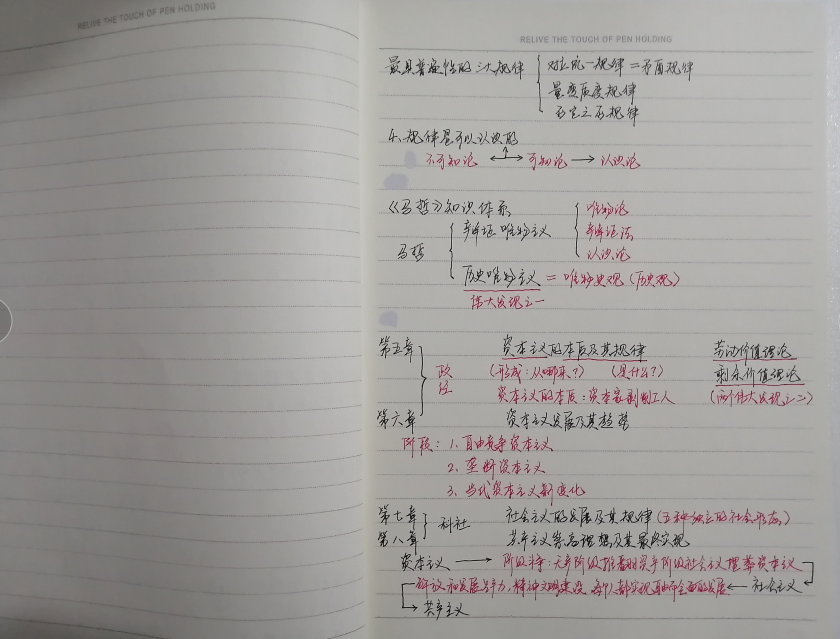 RELIVE THE TOUCH OF PEN HOLDING
RELIVE THE TOUCH OF PEN HOLDING
最具普遍性的三大规律 { 对立统一规律 = 矛盾规律
量变质变规律
否定之否规律
4、规律是可以认识的
不可知论 ↔ 可知论 → 认识论
《马哲》知识体系
马哲 { 辩证唯物主义 { 唯物论
辩证法
认识论
历史唯物主义 = 唯物史观 (历史观)
伟大发现之一
第五章 资本主义的本质及其规律 劳动价值理论
政经 (形成:从哪来?) (是什么?) 剩余价值理论
资本主义的本质:资本家剥削工人 (两个伟大发现之二)
第六章 资本主义发展及其趋势
阶段:1. 自由竞争资本主义
2. 垄断资本主义
3. 当代资本主义新变化
第七章 } 科社 社会主义的发展及其规律 (五种独立的社会形态)
第八章 共产主义崇高理想及其最终实现
资本主义 → 阶级斗争:无产阶级推翻资产阶级社会主义埋葬资本主义
解放和发展生产力,精神文明建设,每个人都实现自由而全面的发展 ← 社会主义
→ 共产主义